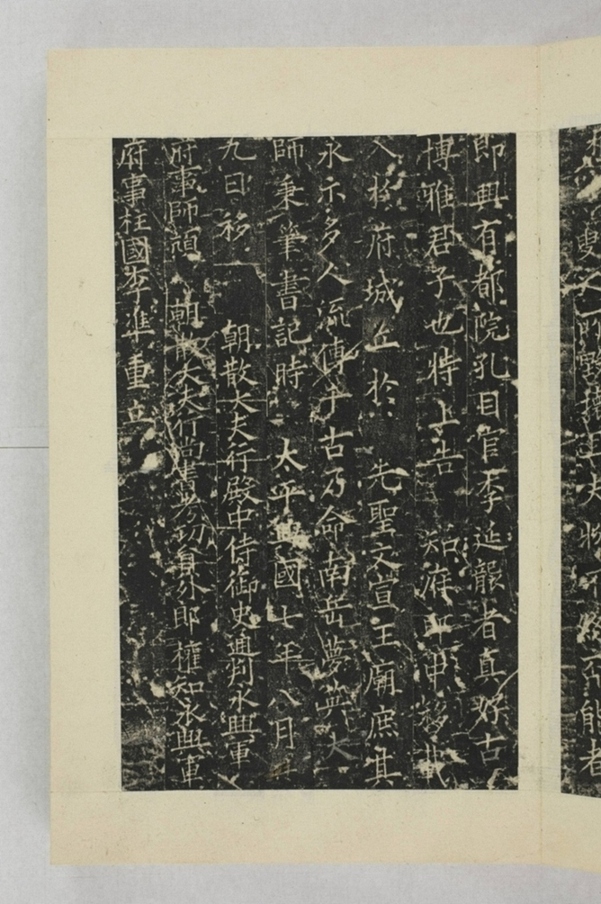 即興有都院孔目官李延襲者真好古
博雅君子也特上告 知府
入於府城立於 先聖文宣王廟庶其
永示多人流傳千古乃命南岳夢英大
師秉筆書記時 太平興國七年八月
九日移 朝散大夫行殿中侍御史通判永興軍
府事師頏 朝散大夫行尚書考功員外郎權知永興軍
府事柱國李準重立